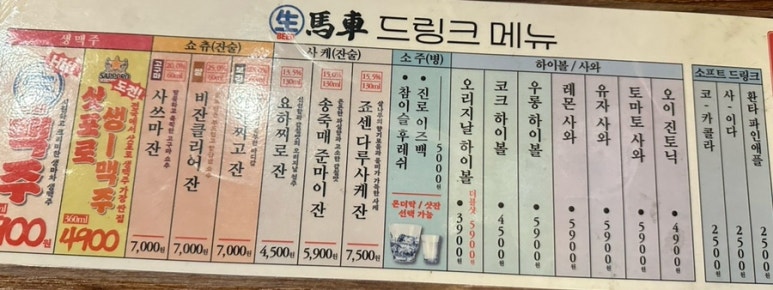 生 馬車 드링크 메뉴
BEER
생맥주
Hit!
맥주
900원
SAPPORO
도전!
전국에서 삿포로 생맥주 가장 싼 집
삿포로
생맥주
360ml
4900
쇼츄(잔술)
고구마
60ml
사쓰마 잔
7,000원
쌀
비잔클리어 잔
7,000원
찌고 잔
7,000원
사케(잔술)
15.5%
130ml
요하찌로 잔
4,500원
15.6%
130ml
송죽매 준마이 잔
5,900원
15.5%
130ml
죠센다루사케 잔
7,500원
소주(병)
• 진로이즈백 5000원
• 참이슬 후레쉬
온더락 / 샷잔
선택 가능
하이볼 / 사와
오리지날 하이볼 • 3900원
더블샷 5900원
코크 하이볼 • 4500원
우롱 하이볼 • 5900원
레몬 사와 • 5900원
유자 사와 • 5900원
토마토 사와 • 5900원
오이 진토닉 • 4900원
소프트 드링크
코-카콜라 2500원
사-이다 2500원
환타 파인애플 2500원